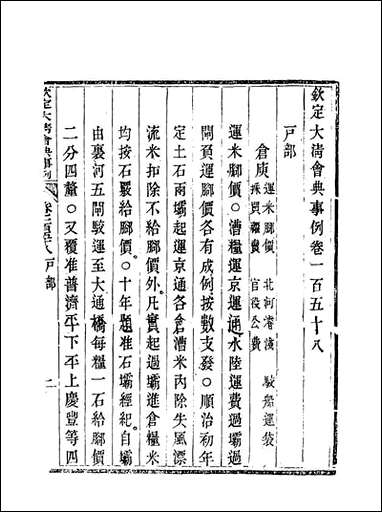 欽定大淸會典事例卷一百五十八
戸部
倉庾 運米腳價 北河濬淺 駮船運袋
採買糴費 官役公費
運米腳價○漕糧運京運通水陸運費過壩過
閘負運腳價各有成例按數支發○順治初年
定土石兩壩起運京通各倉漕米內除失風漂
流米扣除不給腳價外凡實起過壩進倉糧米
均按石覈給腳價○十年題准石壩經紀自壩
由裏河五閘駮運至大通橋每糧一石給腳價
二分四釐○又覆准普濟平下平上慶豐等四
欽定大淸會典事例
戸部